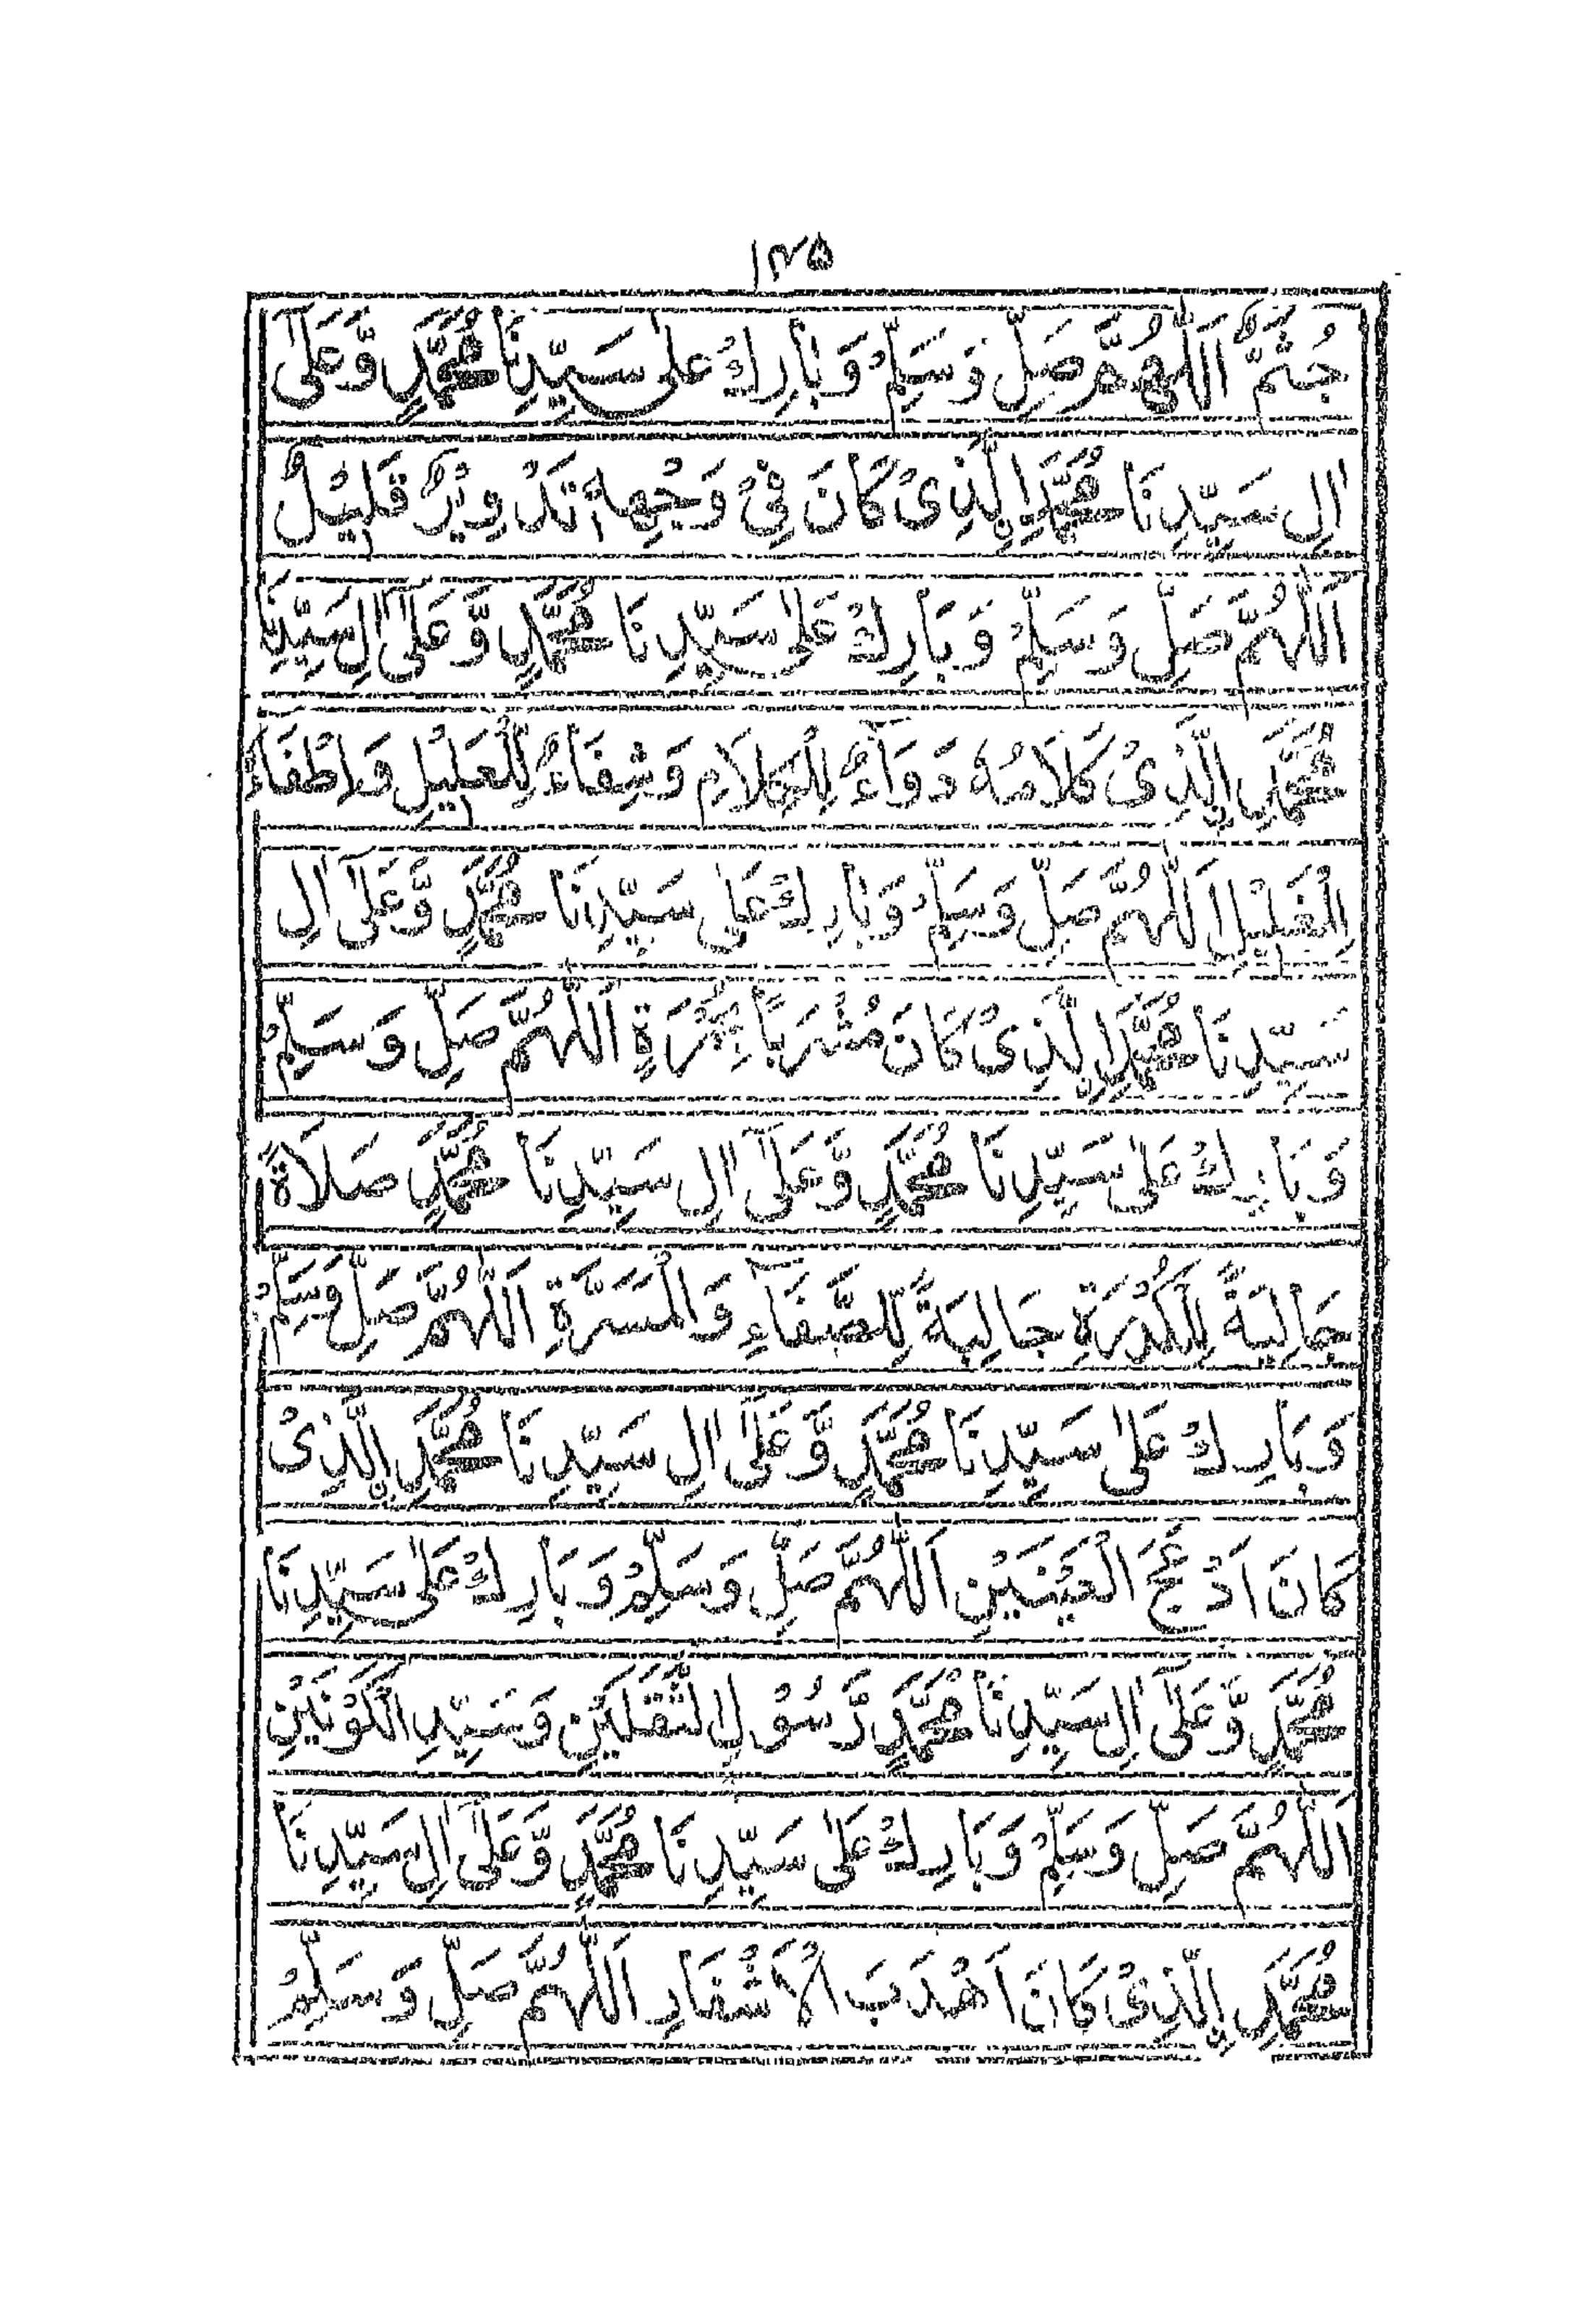 ۱۲۵
جُثَّمٌ اَللّٰهُمَّ صَلِّ وَسَلِّمْ وَبَارِكْ عَلٰى سَيِّدِنَا مُحَمَّدٍ وَّعَلٰٓى
اٰلِ سَيِّدِنَا مُحَمَّدِ ۨالَّذِىْ كَانَ فِىْ وَجْهِهٖ تَدْوِيْرٌ قَلِيْلٌ
اَللّٰهُمَّ صَلِّ وَسَلِّمْ وَبَارِكْ عَلٰى سَيِّدِنَا مُحَمَّدٍ وَّعَلٰٓى اٰلِ سَيِّدِنَا
مُحَمَّدِ ۨالَّذِىْ كَلَامُهٗ دَوَآءٌ لِلْكِلَامِ وَشِفَاءٌ لِلْعَلِيْلِ وَاِطْفَاءُ
الْغَلِيْلِ اَللّٰهُمَّ صَلِّ وَسَلِّمْ وَبَارِكْ عَلٰى سَيِّدِنَا مُحَمَّدٍ وَّعَلٰٓى اٰلِ
سَيِّدِنَا مُحَمَّدِ ۨالَّذِىْ كَانَ مُشْرَبًا بِحُمْرَةٍ اَللّٰهُمَّ صَلِّ وَسَلِّمْ
وَبَارِكْ عَلٰى سَيِّدِنَا مُحَمَّدٍ وَّعَلٰٓى اٰلِ سَيِّدِنَا مُحَمَّدٍ صَلَاةً
جَالِيَةً لِلْكُدْرَةِ جَالِبَةً لِلصَّفَآءِ وَالْمَسَرَّةِ اَللّٰهُمَّ صَلِّ وَسَلِّمْ
وَبَارِكْ عَلٰى سَيِّدِنَا مُحَمَّدٍ وَّعَلٰٓى اٰلِ سَيِّدِنَا مُحَمَّدِ ۨالَّذِىْ
كَانَ اَدْعَجَ الْعَيْنَيْنِ اَللّٰهُمَّ صَلِّ وَسَلِّمْ وَبَارِكْ عَلٰى سَيِّدِنَا
مُحَمَّدٍ وَّعَلٰٓى اٰلِ سَيِّدِنَا مُحَمَّدٍ رَّسُوْلِ الثَّقَلَيْنِ وَسَيِّدِ الْكَوْنَيْنِ
اَللّٰهُمَّ صَلِّ وَسَلِّمْ وَبَارِكْ عَلٰى سَيِّدِنَا مُحَمَّدٍ وَّعَلٰٓى اٰلِ سَيِّدِنَا
مُحَمَّدِ ۨالَّذِىْ كَانَ اَهْدَبَ الْاَشْفَارِ اَللّٰهُمَّ صَلِّ وَسَلِّمْ